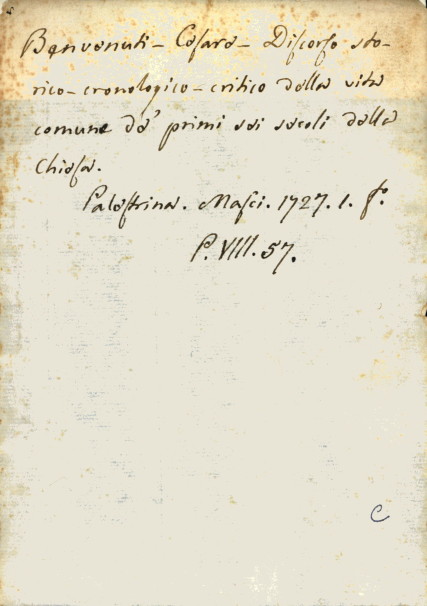 Benvenuti - Cesare - Discorso sto-
rico-cronologico-critico della vita
comune de' primi sei secoli della
Chiesa.
Palestrina. Masci. 1727. 1. fo.
P. VIII. 57.
C